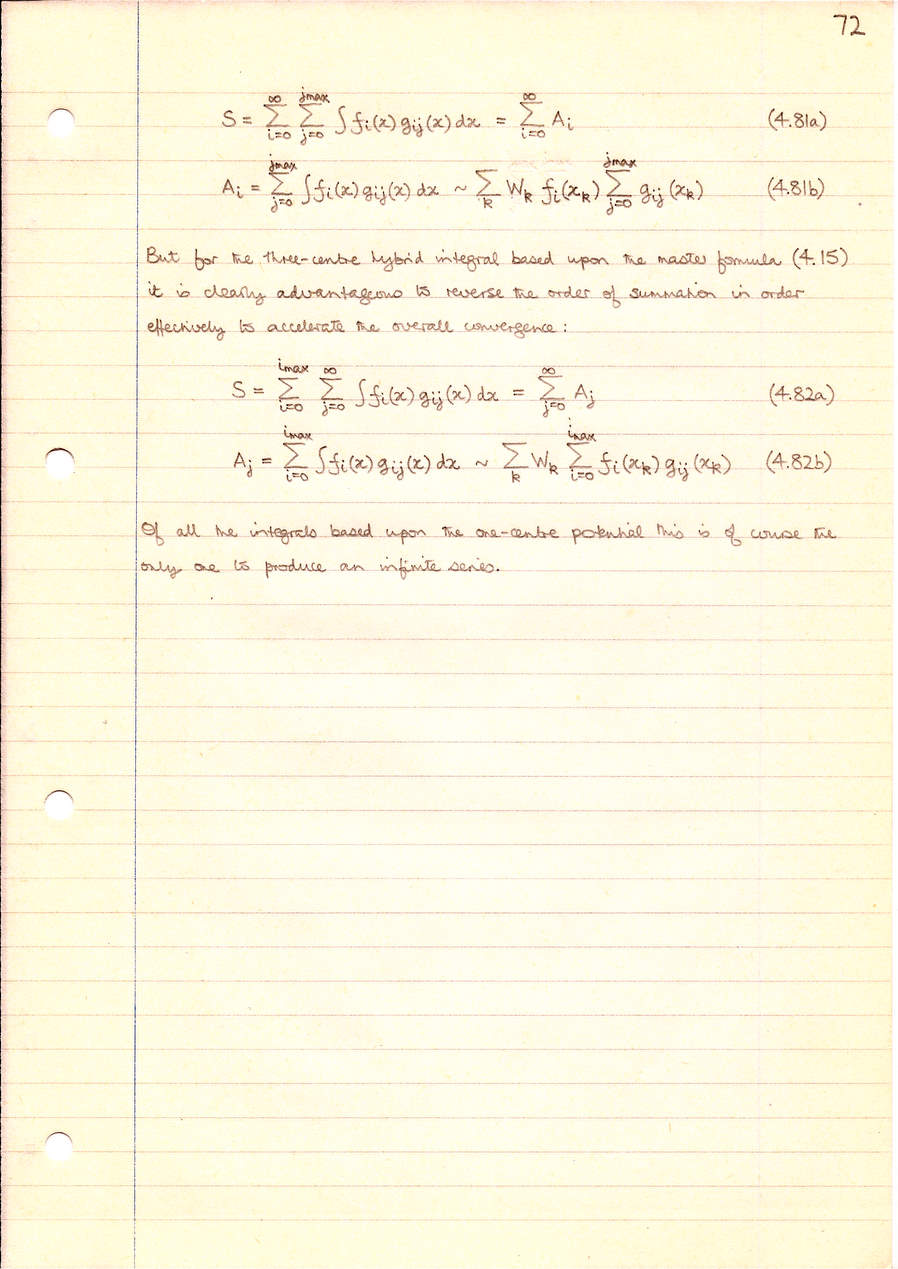 72
S = ∞∑i=0 jmax∑j=0 ∫fi(x) gij(x) dx = ∞∑i=0 Ai (4.81a)
Ai = jmax∑j=0 ∫fi(x) gij(x) dx ~ ∑k Wk fi(xk) jmax∑j=0 gij(xk) (4.81b)
But for the three-centre hybrid integral based upon the master formula (4.15)
it is clearly advantageous to reverse the order of summation in order
effectively to accelerate the overall convergence:
S = imax∑i=0 ∞∑j=0 ∫fi(x) gij(x) dx = ∞∑j=0 Aj (4.82a)
Aj = imax∑i=0 ∫fi(x) gij(x) dx ~ ∑k Wk imax∑i=0 fi(xk) gij(xk) (4.82b)
Of all the integrals based upon the one-centre potential this is of course the
only one to produce an infinite series.